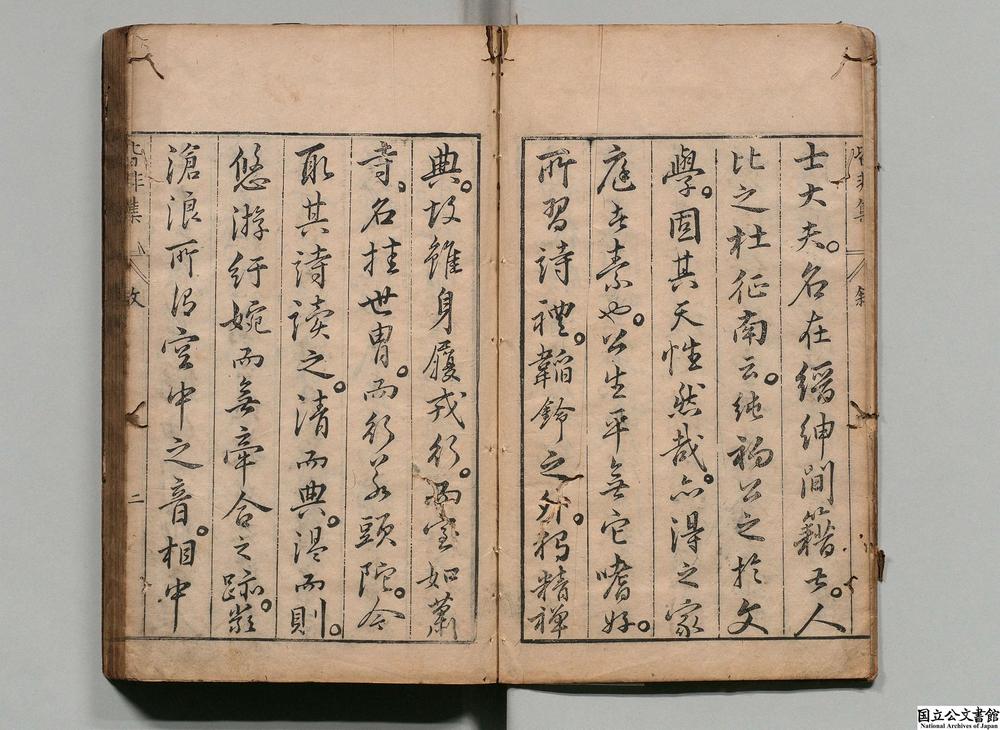 士大夫。名在縉紳間籍甚。人
比之杜征南云。純禍公之於文
學。固其天性然哉。亦得之家
庭者素也。公生平無它嗜好。
所習詩禮。韜鈐之外。獨精禪
典。故雖身履戎行。而室如蕭
寺。名挂世胄。而行若頭陀。今
取其詩讀之。清而典。澀而則。
悠游紆婉而無牽合之跡。嚴
滄浪所謂空中之音。相中
皆非集
敘
皆非集
敘
二
国立公文書館
National Archives of Japan